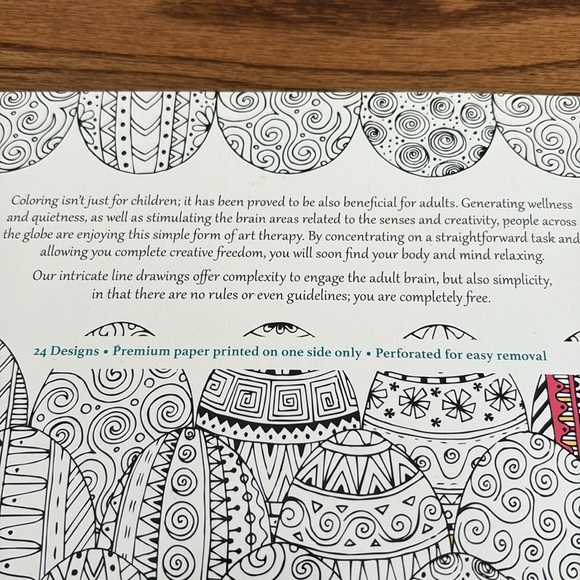 Coloring isn't just for children; it has been proved to be also beneficial for adults. Generating wellness
and quietness, as well as stimulating the brain areas related to the senses and creativity, people across
the globe are enjoying this simple form of art therapy. By concentrating on a straightforward task and
allowing you complete creative freedom, you will soon find your body and mind relaxing.
Our intricate line drawings offer complexity to engage the adult brain, but also simplicity,
in that there are no rules or even guidelines; you are completely free.
24 Designs • Premium paper printed on one side only • Perforated for easy removal